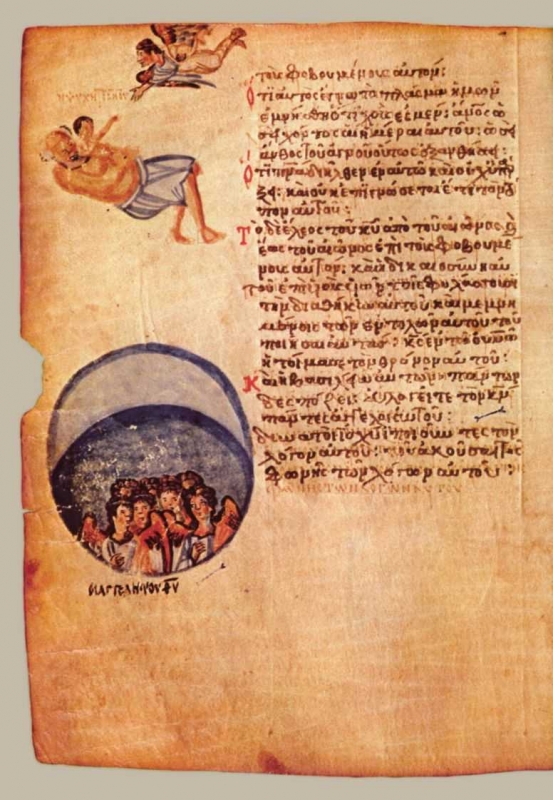 τοὺς φοβουμένους αὐτόν:
Ὅτι αὐτὸς ἔγνω τὸ πλάσμα ἡμῶν
ἐμνήσθη ὅτι χοῦς ἐσμέν: ἄνος ὡ
σεὶ χόρτος αἱ ἡμέραι αὐτοῦ: ὡσεὶ
ἄνθος τοῦ ἀγροῦ οὕτως ἐξανθήσει:
Ὅτι πνα διῆλθεν ἐν αὐτῶ καὶ οὐχ ὑπάρ
ξει: καὶ οὐκ ἐπιγνώσεται ἔτι τὸν τό
πον αὐτοῦ:
Τὸ δὲ ἔλεος τοῦ κυ ἀπὸ τοῦ αἰῶνος καὶ
ἕως τοῦ αἰῶνος ἐπὶ τοὺς φοβουμέ
νους αὐτόν: καὶ ἡ δικαιοσύνη αὐ
τοῦ ἐπὶ υἱοῖς υἱῶν τοῖς φυλάσσουσι
τὴν διαθήκην αὐτοῦ καὶ μεμνη
μένοις τῶν ἐντολῶν αὐτοῦ τοῦ
ποιῆσαι αὐτάς: κς ἐν τῶ οὐνῶ
ἡτοίμασε τὸν θρόνον αὐτοῦ:
Καὶ ἡ βασιλεία αὐτοῦ πάντων
δεσπόζει: Εὐλογεῖτε τὸν κν
πάντες οἱ ἄγγελοι αὐτοῦ:
δυνατοὶ ἰσχύϊ ποιοῦντες τὸν
λόγον αὐτοῦ: τοῦ ἀκοῦσαι τῆς
φωνῆς τῶν λόγων αὐτοῦ:
ΟΙ ΑΓΓΕΛΗ ΤΟΥ ΘΥ